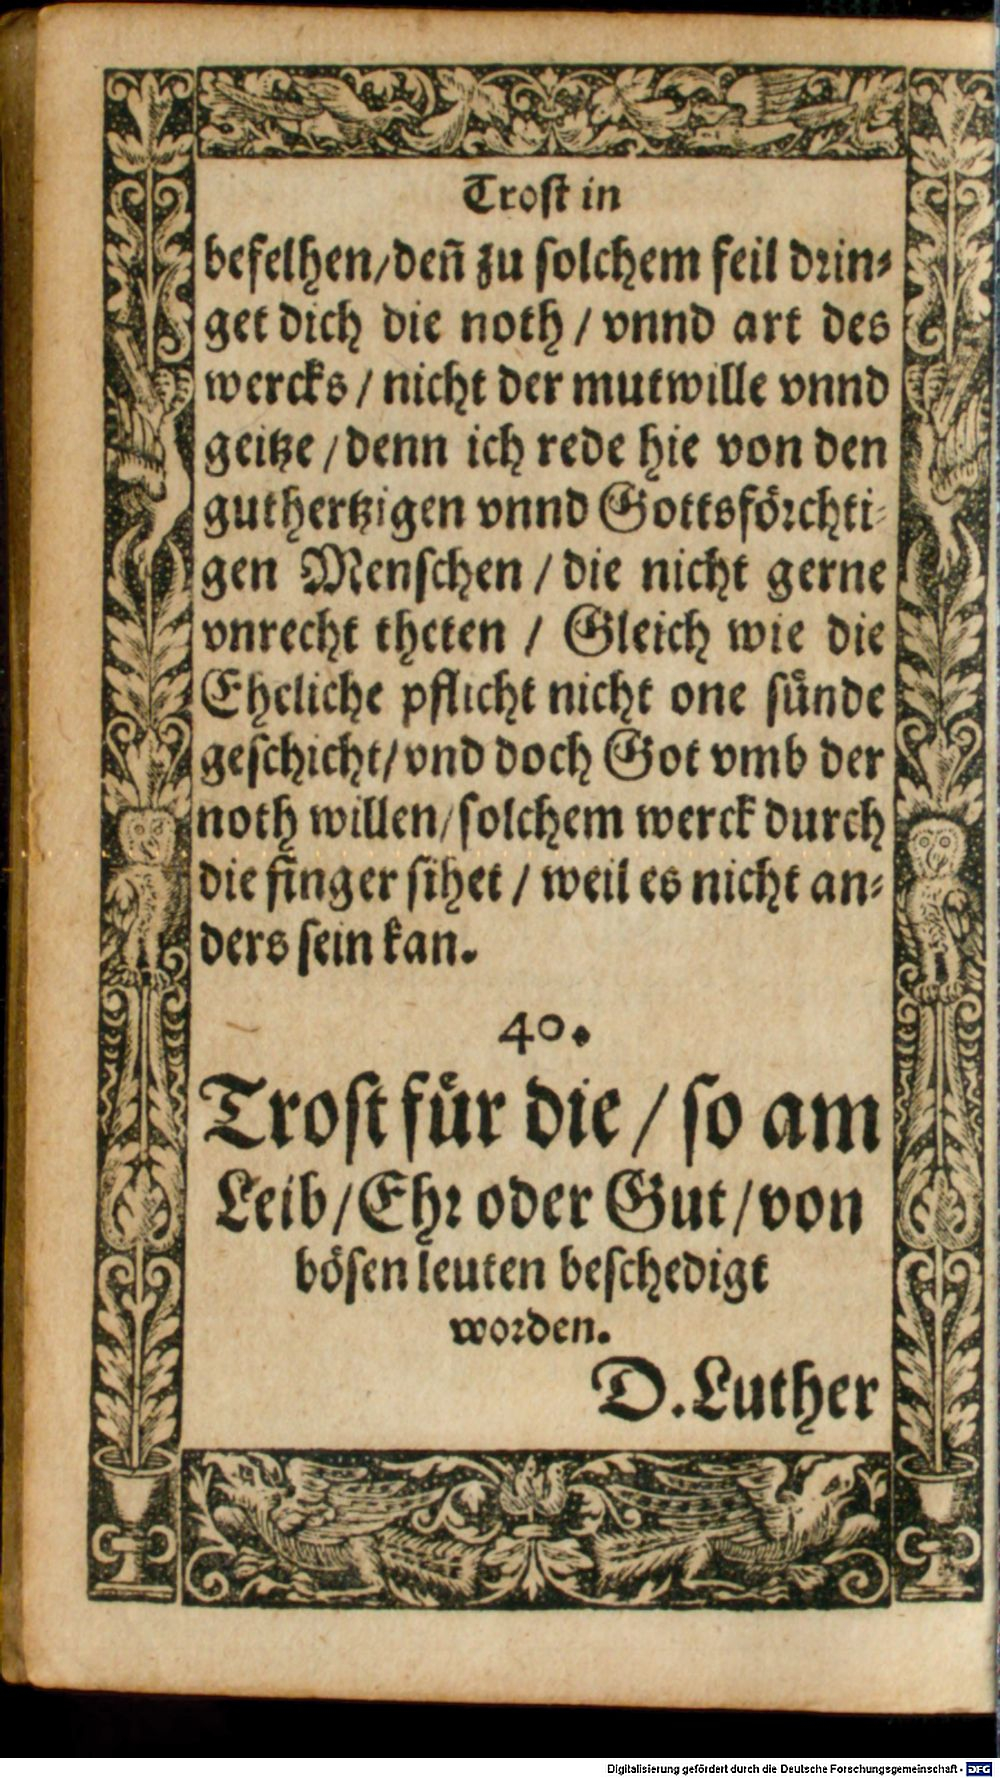 Trost in
befelhen/deñ zu solchem feil drin⸗
get dich die noth / vnnd art des
wercks / nicht der mutwille vnnd
geitze / denn ich rede hie von den
guthertzigen vnnd Gottsförchti⸗
gen Menschen / die nicht gerne
vnrecht theten / Gleich wie die
Eheliche pflicht nicht one sünde
geschicht/vnd doch Got vmb der
noth willen/solchem werck durch
die finger sihet / weil es nicht an⸗
ders sein kan.
40.
Trost für die / so am
Leib / Ehr oder Gut / von
bösen leuten beschedigt
worden.
D. Luther
Digitalisierung gefördert durch die Deutsche Forschungsgemeinschaft - DFG